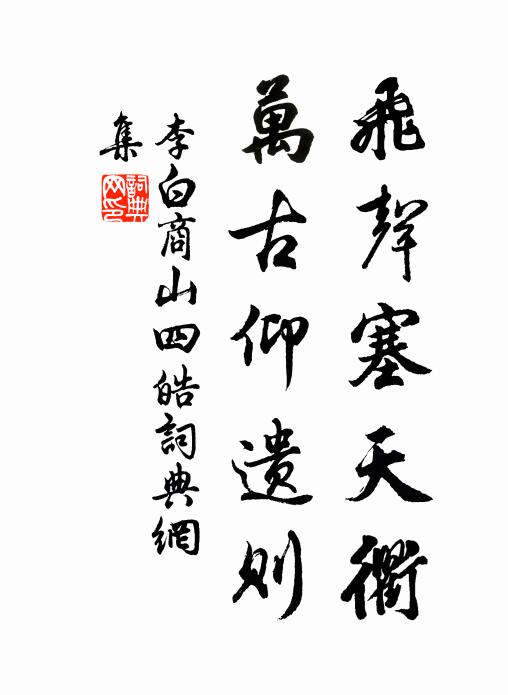 飛聲塞天衢
萬古仰遺則
李白商山四皓詞典網
集
詞典
网印